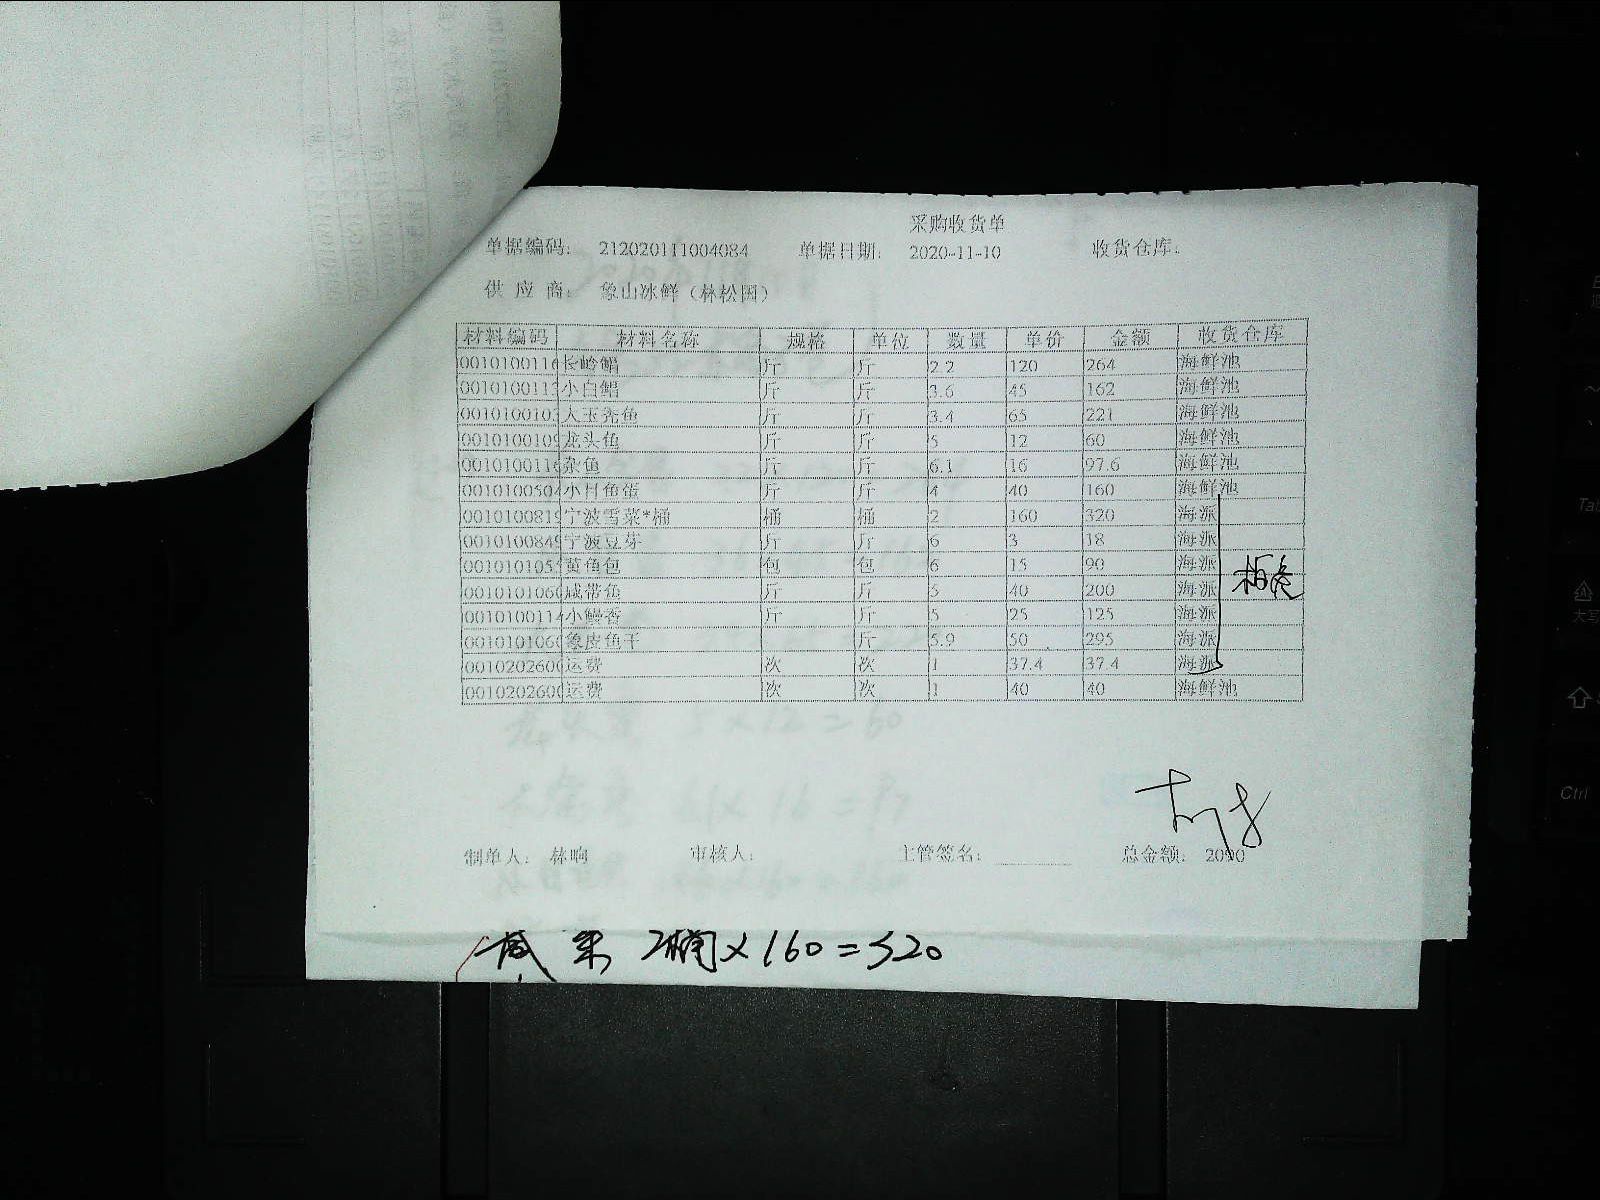 采购收货单
单据编码: 212020111004084 单据日期: 2020-11-10 收货仓库:
供 应 商: 象山冰鲜（林松园）
材料编码 材料名称 规格 单位 数量 单价 金额 收货仓库
0010100116 长岭鲳 斤 斤 2.2 120 264 海鲜池
001010011 小白鲳 斤 斤 3.6 45 162 海鲜池
001010010 大玉秃鱼 斤 斤 3.4 65 221 海鲜池
0010100109 龙头鱼 斤 斤 5 12 60 海鲜池
0010100116 杂鱼 斤 斤 6.1 16 97.6 海鲜池
001010050 小目鱼蛋 斤 斤 4 40 160 海鲜池
0010100819 宁波雪菜*桶 桶 桶 2 160 320 海派
0010100849 宁波豆芽 斤 斤 6 3 18 海派
001010105 黄鱼包 包 包 6 15 90 海派
0010101060 咸带鱼 斤 斤 5 40 200 海派
001010011 小鳗香 斤 斤 5 25 125 海派
001010106 象皮鱼干 斤 5.9 50 295 海派
001020260 运费 次 次 1 37.4 37.4 海派
001020260 运费 次 次 1 40 40 海鲜池
制单人: 林响 审核人: 主管签名: 总金额: 2090
咸菜 2桶×160=320
Ctrl